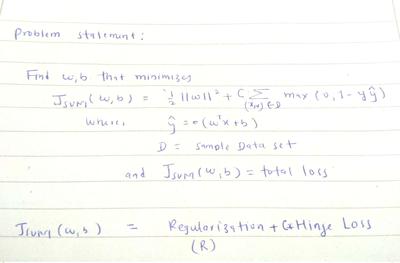 Problem statement:
Find w,b that minimizes
J_SVM(w,b) = ½ ||w||² + C Σ_(x,y)∈D max(0, 1-yŷ)
where, ŷ = σ(wᵀx+b)
D = sample Data set
and J_SVM(w,b) = total loss
J_SVM(w,b) = Regularization + C Hinge Loss
(R)